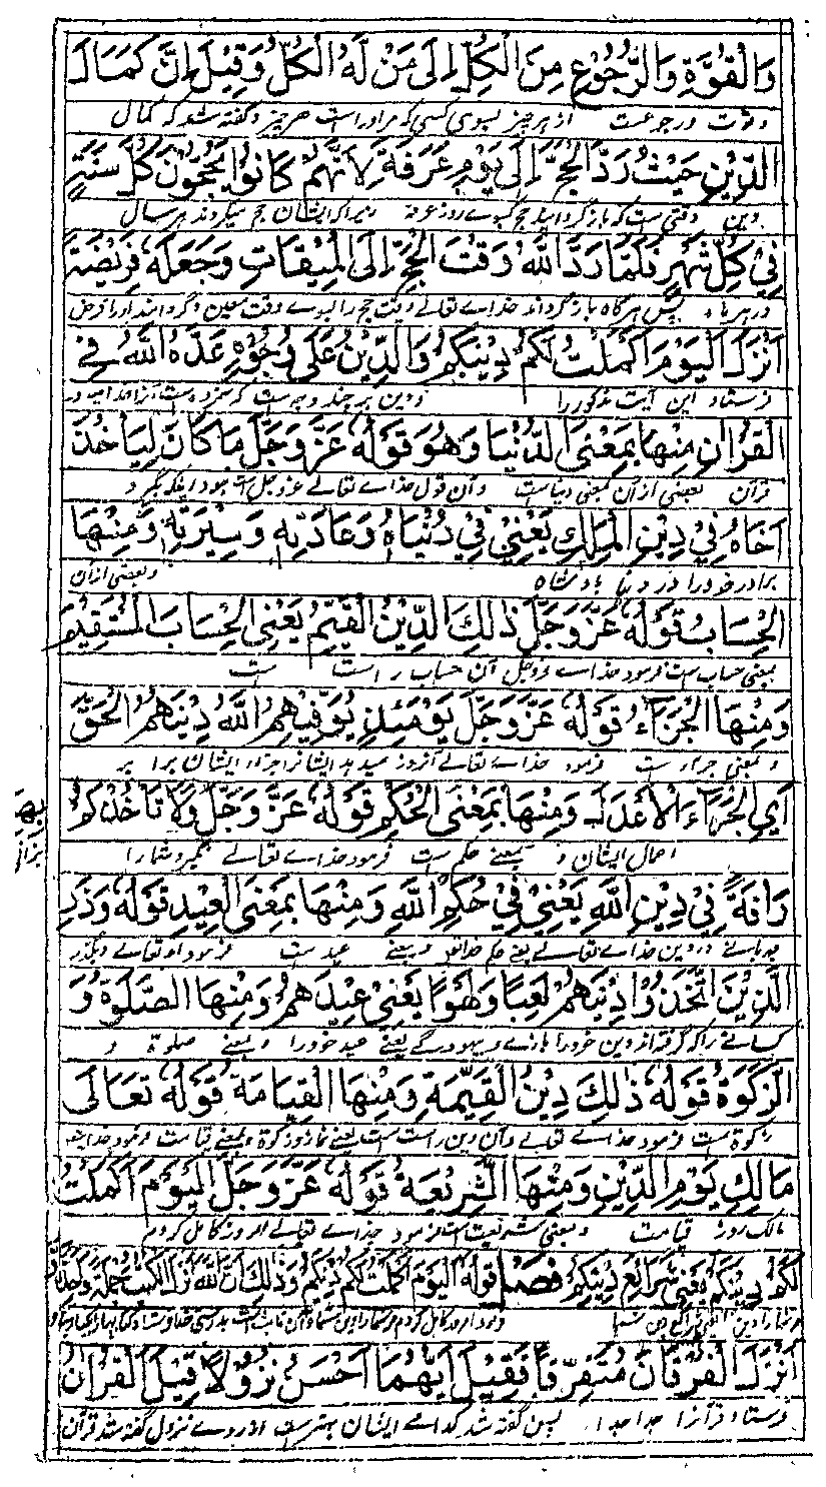 وَالْقُوَّةِ وَالرُّجُوْعِ مِنَ الْكُلِّ اِلٰى مَنْ لَهُ الْكُلُّ وَقِيْلَ اِنَّ كَمَالَ
وقوت ورجوعت از هر چیز بسوی کسی که مر اوراست هر چیز و گفته شد که کمال
الدِّيْنِ حَيْثُ رَدَّ الْحَجَّ اِلٰى يَوْمِ عَرَفَةَ لِاَنَّهُمْ كَانُوْا يَحُجُّوْنَ كُلَّ سَنَةٍ
دین وقتی ست که باز گردانید حج بسوے روز عرفه زیراکه ایشان حج میکردند هر سال
فِيْ كُلِّ شَهْرٍ فَلَمَّا رَدَّ اللّٰهُ وَقْتَ الْحَجِّ اِلَى الْمِيْقَاتِ وَجَعَلَهٗ فَرِيْضَةً
در هر ماه پس هرگاه باز گردانید خداے تعالے وقت حج را بسوے وقت معین و گردانید اورا فرض
اَنْزَلَ اَلْيَوْمَ اَكْمَلْتُ لَكُمْ دِيْنَكُمْ وَالدِّيْنُ عَلٰى وُجُوْهٍ عَدَّهُ اللّٰهُ فِي
فرستاد این آیت مذکور را ودین بر چند وجه ست که
الْقُرْاٰنِ مِنْهَا بِمَعْنَى الدُّنْيَا وَهُوَ قَوْلُهٗ عَزَّ وَجَلَّ مَا كَانَ لِيَاْخُذَ
قرآن بعضی ازآن بمعنی دنیاست وآن قول خداے تعالے عزوجل است نبود اینکه بگیرد
اَخَاهُ فِيْ دِيْنِ الْمَلِكِ يَعْنِيْ فِيْ دُنْيَاهُ وَعَادَتِهٖ وَسِيْرَتِهٖ وَمِنْهَا
برادر خودرا در دنیا بادشاه وبعضی ازآن
الْحِسَابُ قَوْلُهٗ عَزَّوَجَلَّ ذٰلِكَ الدِّيْنُ الْقَيِّمُ يَعْنِى الْحِسَابَ الْمُسْتَقِيْمَ
بمعنی حساب ست فرمود خداے عزوجل این حساب راست ست
وَمِنْهَا الْجَزَاءُ قَوْلُهٗ عَزَّ وَجَلَّ يَوْمَئِذٍ يُوَفِّيْهِمُ اللّٰهُ دِيْنَهُمُ الْحَقَّ
و بمعنی جزاء ست فرمود خداے تعالے آنروز میدهد ایشانرا جزاء ایشان برابر
اَيِ الْجَزَاءَ الْاَعْدَلَ وَمِنْهَا بِمَعْنَى الْحُكْمِ قَوْلُهٗ عَزَّ وَجَلَّ وَلَا تَاْخُذْكُمْ
اعمال ایشان و بمعنے حکم ست فرمود خداے تعالے نگیرد شمارا
بِهِمَا
رَاْفَةٌ فِيْ دِيْنِ اللّٰهِ يَعْنِيْ فِيْ حُكْمِ اللّٰهِ وَمِنْهَا بِمَعْنَى الْعِيْدِ قَوْلُهٗ وَذَرِ
مهربانے در دین خداے تعالے یعنے حکم خداے و بمعنے عید ست فرمود او تعالے و بگذار
الَّذِيْنَ اتَّخَذُوْا دِيْنَهُمْ لَعِبًا وَلَهْوًا يَعْنِيْ عِيْدَهُمْ وَمِنْهَا الصَّلٰوةُ وَ
کسانے را که گرفته اند دین خودرا بازے و بیهودگے یعنے عید خودرا و بمعنے صلوة و
الزَّكٰوةُ قَوْلُهٗ ذٰلِكَ دِيْنُ الْقَيِّمَةِ وَمِنْهَا الْقِيَامَةُ قَوْلُهٗ تَعَالٰى
زکوة ست فرمود خداے تعالے وآن دین راست ست یعنے نماز وزکوة و بمعنے قیامت فرمود خداے
مَالِكِ يَوْمِ الدِّيْنِ وَمِنْهَا الشَّرِيْعَةُ قَوْلُهٗ عَزَّ وَجَلَّ اَلْيَوْمَ اَكْمَلْتُ
مالک روز قیامت و بمعنی شریعت است فرمود خداے تعالے امروز کامل کردم
لَكُمْ دِيْنَكُمْ يَعْنِيْ شَرَائِعَ دِيْنِكُمْ فصل قَوْلُهٗ اَلْيَوْمَ اَكْمَلْتُ لَكُمْ دِيْنَكُمْ وَذٰلِكَ اَنَّ اللّٰهَ نَزَّلَ الْكُتُبَ جُمْلَةً وَاحِدَةً
اَنْزَلَ الْفُرْقَانَ مُتَفَرِّقًا فَقِيْلَ اَيُّهُمَا اَحْسَنُ نُزُوْلًا قِيْلَ الْقُرْاٰنُ
فرستاد قرآنرا جدا جدا پس گفته شد کدامے ایشان بهترست ازروے نزول گفته شد قرآن